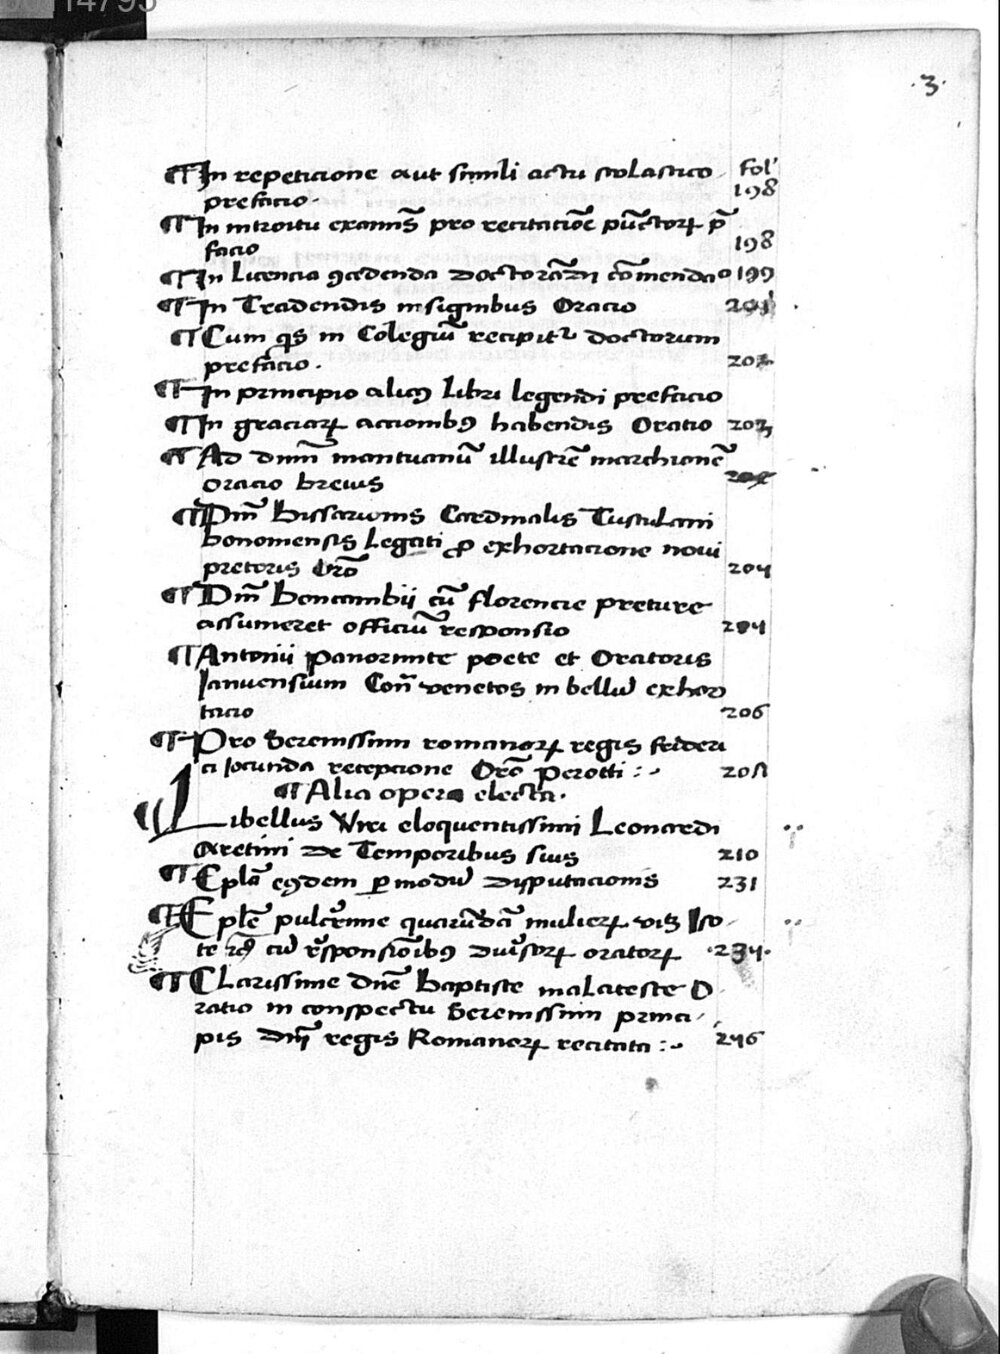 .3.
¶ In repeticione aut simili actu scolastico Fol'
prefacio. 198
¶ In introitu examīs pro recitatiōe pūctorꝝ p̄
facio 198
¶ In Licencia ꝯcedenda doctorādi cōmendao 199
¶ In Tradendis insignibus Oracio 201
¶ Cum qs in Colegiū recipitr doctorum
prefacio. 202
¶ In principio alicꝰ libri legendi prefacio
¶ In graciarꝝ accionibꝰ habendis Oratio 203
¶ Ad dnm̄ mantuanū illustrē marchionē
oracio brevis
¶ Dm̄ Bissarionis Cardinalis Tusculani
bononiensis Legati ꝓ exhortacione novi
pretoris Orō 204
¶ Dm̄ Boncambii cū florencie preture
assumeret officiū responsio 204
¶ Antonii panormite poete et Oratoris
Januensium Con̄ venetos in bellū exhor
tacio 206
¶ Pro Serenissimi romanorꝝ regis frideri
ci Jocunda recepcione Orō Perotti :~ 208
¶ Alia opera electa.
¶ Libellus Viri eloquentissimi Leonardi
Aretini De Temporibus suis 210
¶ Epla eꝯdem ꝑ modū Disputacionis 231
¶ Eple pulcerrime quarūdā mulierꝝ viꝫ Iso
te cū rꝰsponsiōibꝰ diuꝰsorꝝ oratorꝝ .234.
¶ Clarissime dn̄e Baptiste malateste O
ratio in conspectu Serenissimi princi
pis dnī regis Romanorꝝ recitata :~ 246